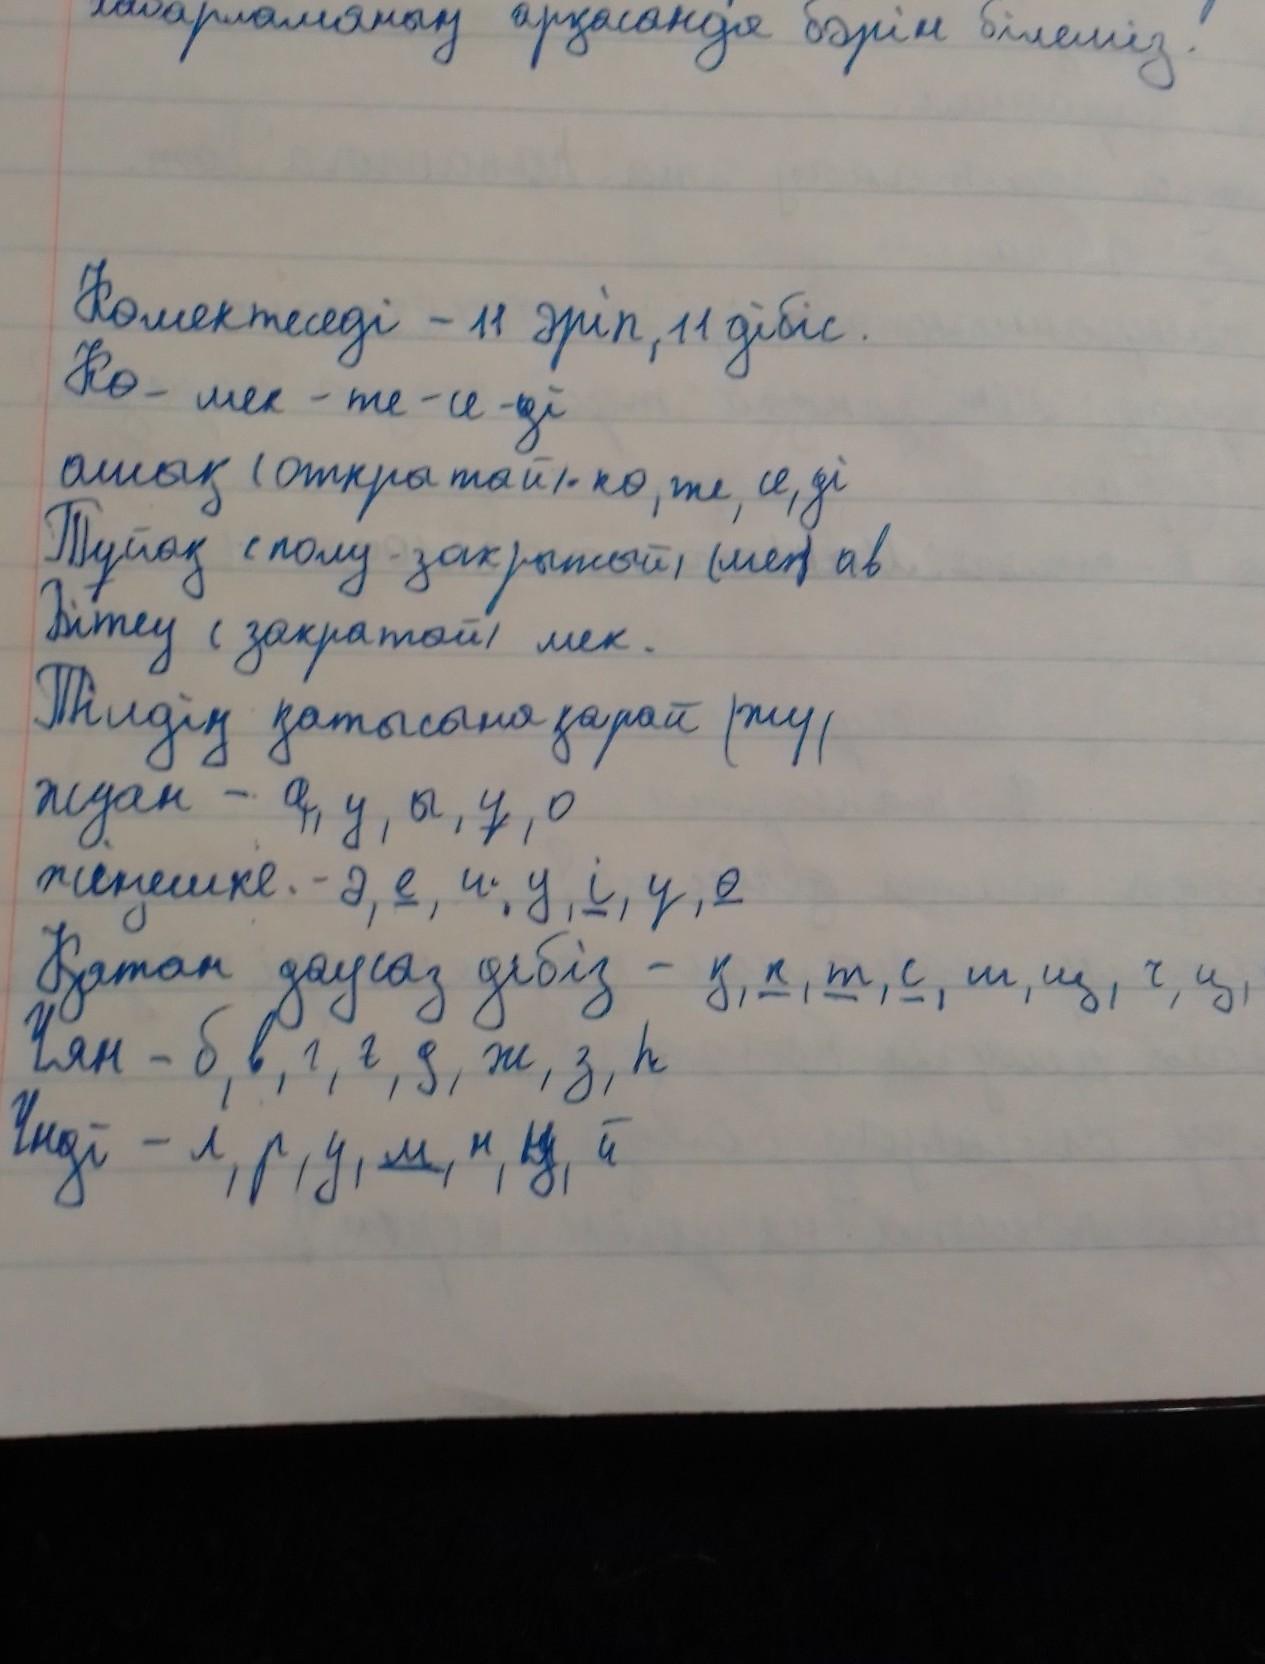 хабарламаның арқасанда бәрін білеміз.
Көмектеседі - 11 әріп, 11 дібіс.
Кө - мек - те - се - ді
ашық (открытай) - кө, те, се, ді
Тұйық (полу-закрытый) (мек) ав
Бітеу (закратой) мек.
Тілдің қатысына қарай (жу)
жуан - а, у, ы, ұ, о
жіңішке. - ә, е, и, у, і, ү, ө
Қатаң дауссаз дібіз - қ, к, т, с, ш, щ, ч, ц,
Ұян - б, в, г, ғ, д, ж, з, һ
Үнді - л, р, у, м, н, ң, й